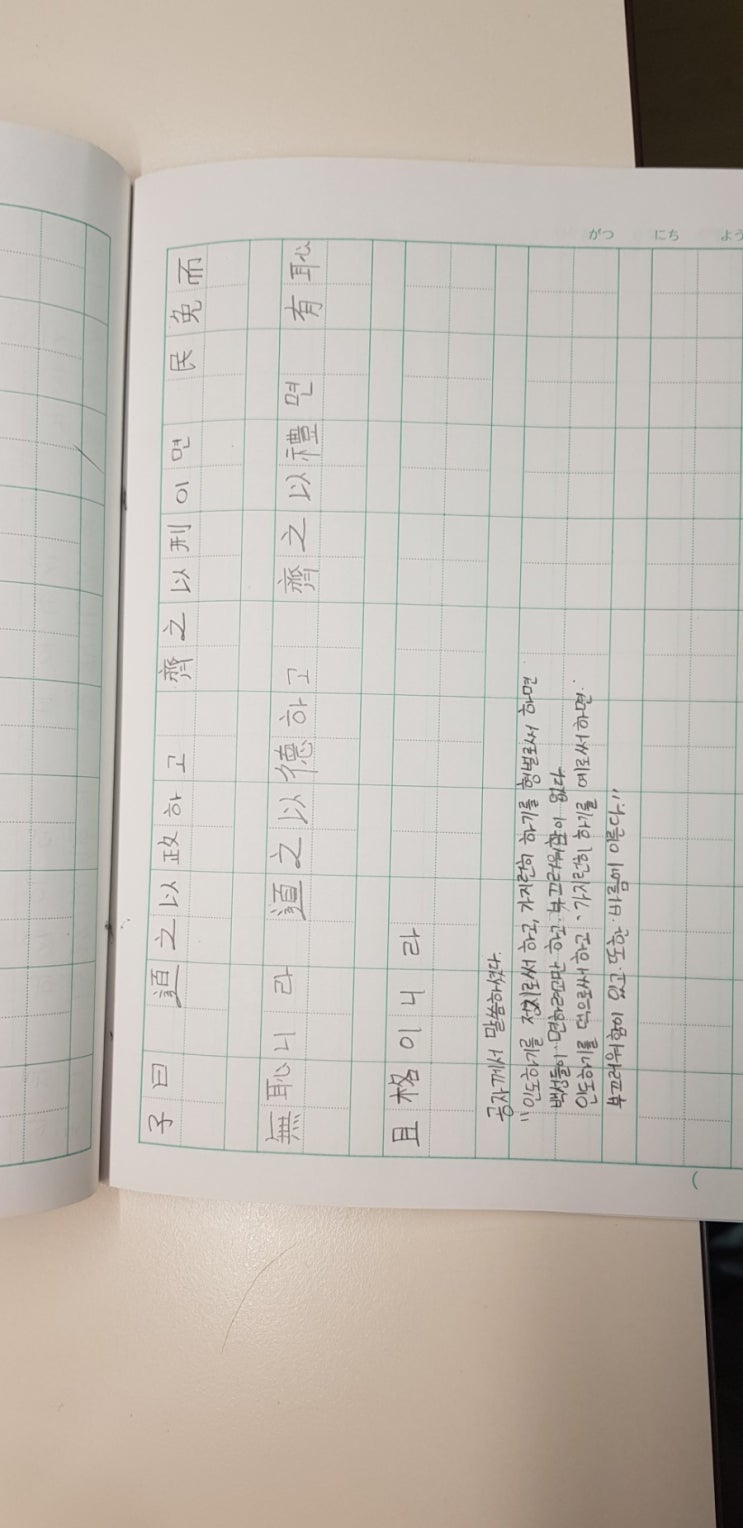 子曰 道之以政하고 齊之以刑이면 民免而
無恥니라 道之以德하고 齊之以禮면 有恥
且格이니라
공자께서 말씀하셨다.
"인도하기를 정치로써 하고, 가지런히 하기를 형벌로써 하면
백성들이 면하려고만 하고 부끄러워함이 없다
인도하기를 덕으로써 하고, 가지런히 하기를 예로써 하면
부끄러워함이 있고 또한 바름에 이른다."
がつ にち よう
(